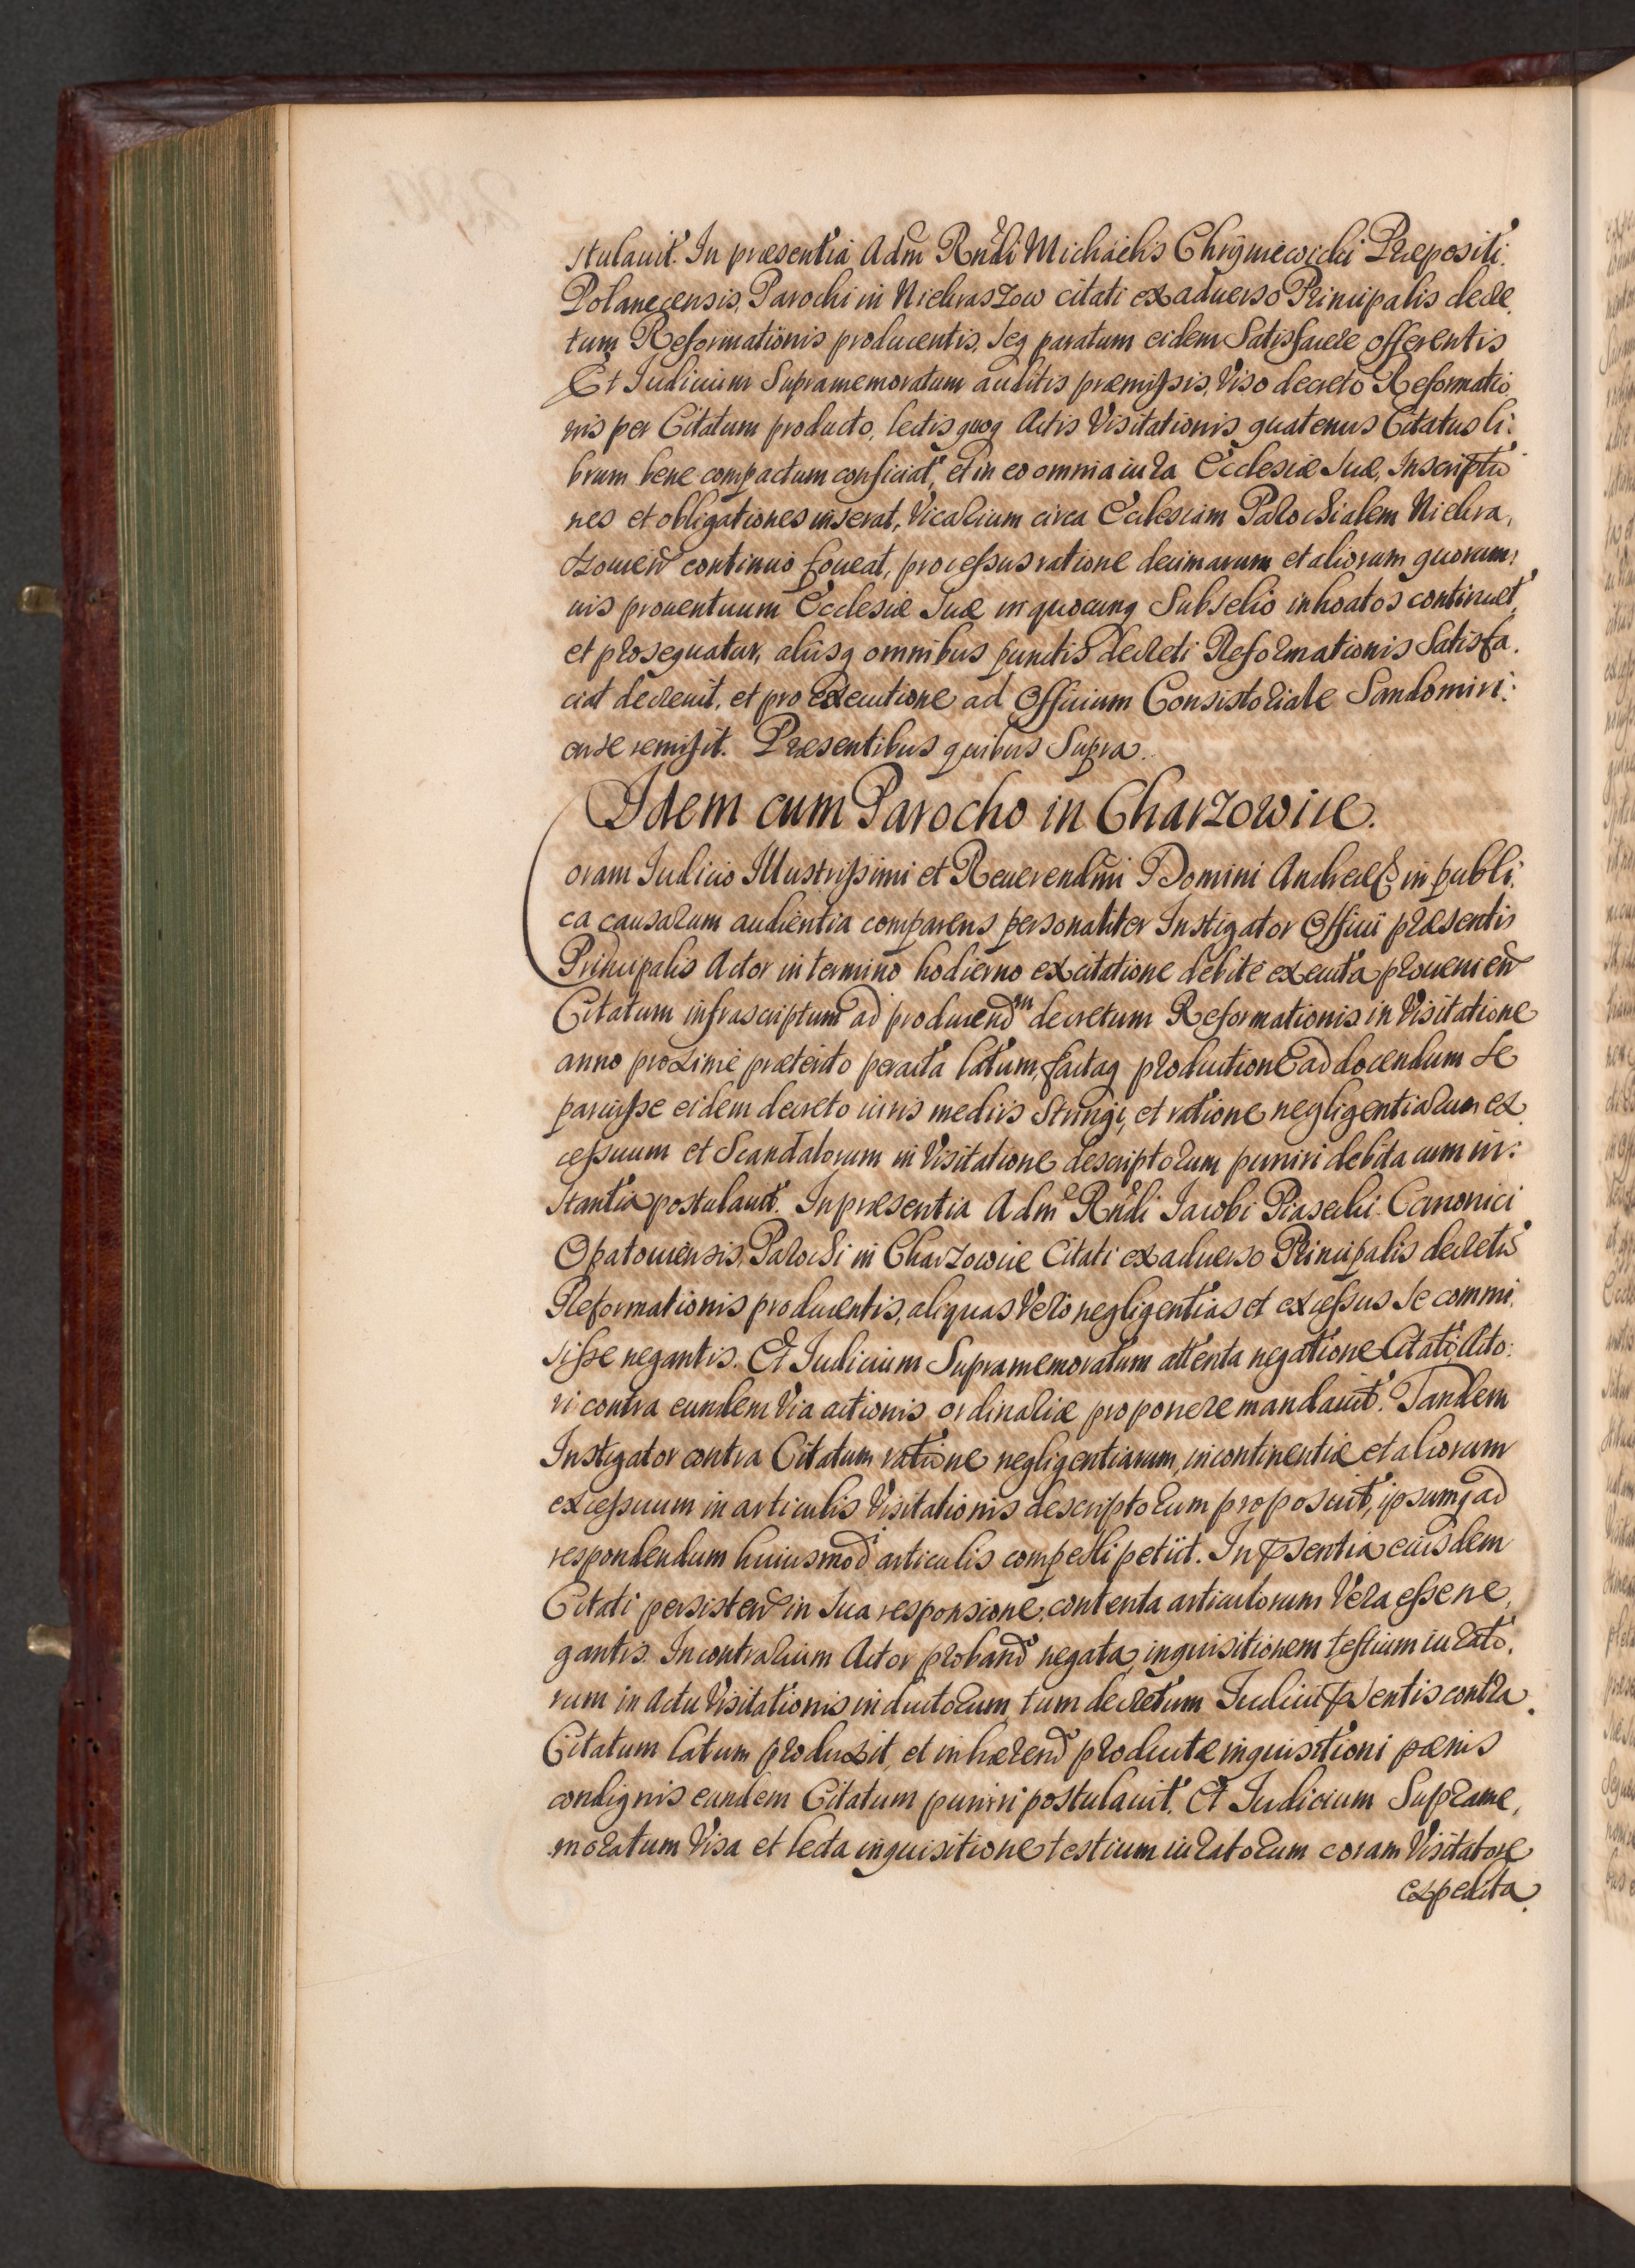 stulauit. In præsentia Adm Rndi Michaelis Chrÿniewicki Præpositi
Polanecensis, Parochi in Niekraszow citati ex aduerso Principalis decre,
tum Reformationis producentis, seq paratum eidem Satisfacere offerentis
Et Iudicium Supramemoratum auditis præmissis, Viso decreto Reformatio
nis per Citatum producto, lectis quoq Actis Visitationis quatenus Citatus li:
brum bene compactum conficiat, et in eo omnia iura Ecclesiæ suæ, Inscriptio
nes et obligationes inserat, Vicarium circa Ecclesiam Parochialem Niekra,
szouien continuo foueat, processus ratione decimarum et aliorum quorum,
uis prouentuum Ecclesiæ suæ in quocunq Subselio inhoatos continuet,
et prosequatur, aliisq omnibus punctis decreti Reformationis Satisfa,
ciat decreuit, et pro executione ad Officium Consistoriale Sandomiri:
ense remisit. Præsentibus quibus Supra.
Idem cum Parocho in Charzowice.
Coram Iudicio Illustrissimi et Reuerendmi Domini Andreæ & in publi,
ca causarum audientia comparens personaliter Instigator Officii præsentis
Principalis Actor in termino hodierno ex citatione debite executa proueni en
Citatum infrascriptum ad producendm decretum Reformationis in Visitatione
anno proxime præterito peracta latum, factaq productione ad docendum se
paruisse eidem decreto iuris mediis stringi, et ratione negligentiarum ex
cessuum et Scandalorum in Visitatione descriptorum puniri debita cum in:
stantia postulauit. In præsentia Adm Rndi Iacobi Piasecki Canonici
Opatouiensis, Parochi in Charzowice Citati ex aduerso Principalis decretum
Reformationis producentis, aliquas Vero negligentias et excessus se commi,
sisse negantis. Et Iudicium Supramemoratum attenta negatione Citati, Acto:
ri contra eundem Via actionis ordinariæ proponere mandauit. Tandem
Instigator contra Citatum ratione negligentiarum, incontinentiæ et aliorum
excessuum in articulis Visitationis descriptorum proposuit, ipsumq ad
respondendum huiusmodi articulis compelli petiit. In psentia eiusdem
Citati persisten in sua responsione, contenta articulorum Vera esse ne,
gantis. In contrarium Actor proband negata, inquisitionem testium iurato,
rum in Actu Visitationis inductorum, tum decretum Iudicii psentis contra
Citatum latum produxit, et inhærend productæ inquisitioni pœnis
condignis eundem Citatum puniri postulauit. Et Iudicium Suprame,
moratum Visa et lecta inquisitione testium iuratorum coram Visitatore
expedita